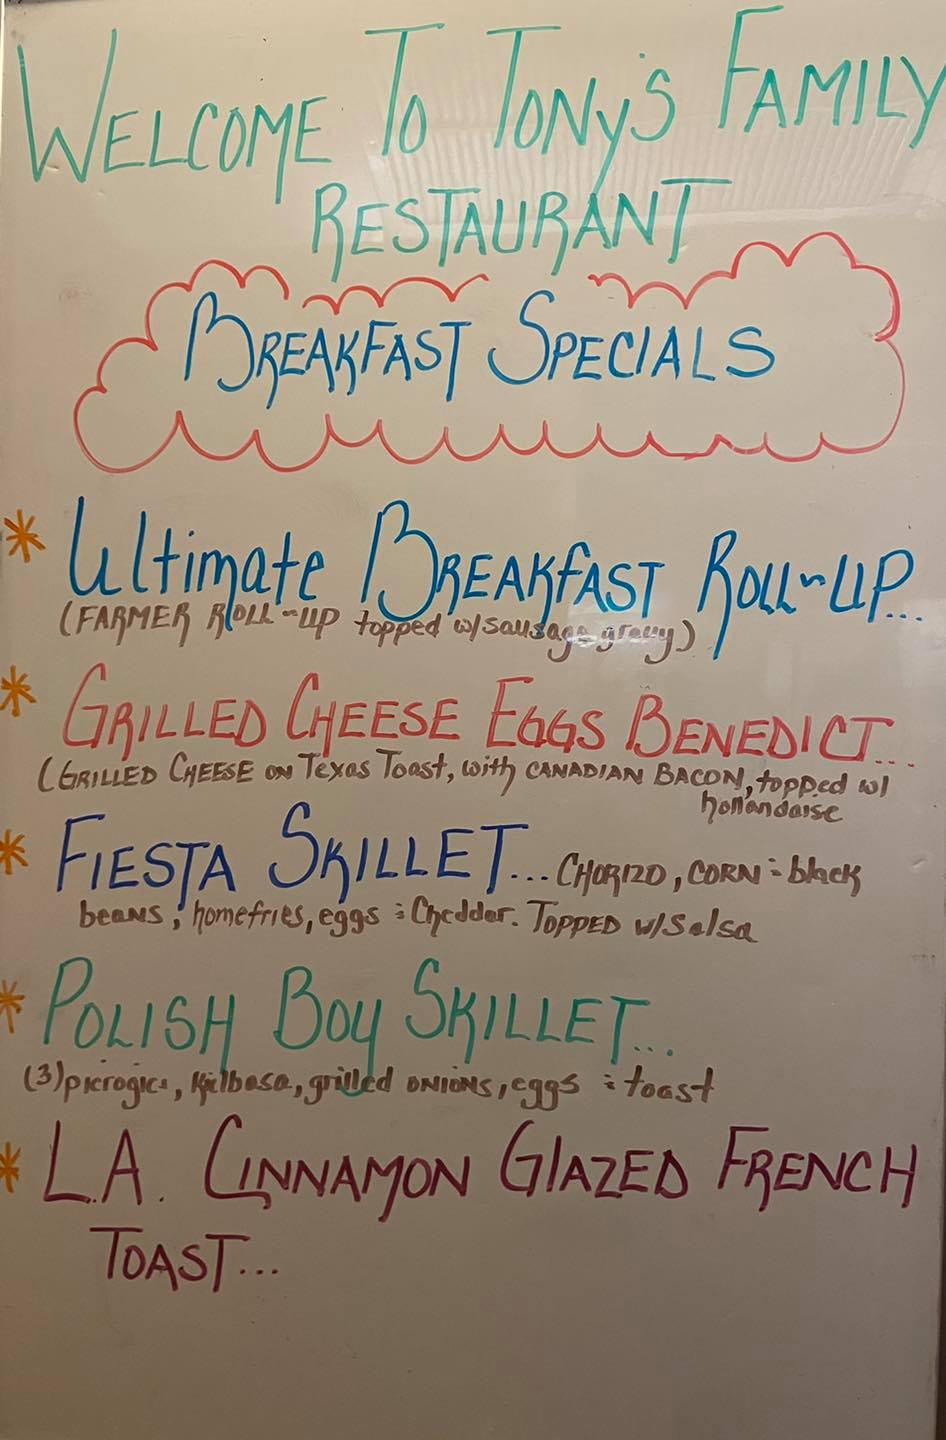 WELCOME TO TONY'S FAMILY
RESTAURANT
BREAKFAST SPECIALS
* Ultimate BREAKFAST ROLL-UP...
(FARMER ROLL-UP topped w/sausage gravy)
* GRILLED CHEESE EGGS BENEDICT...
(GRILLED CHEESE ON Texas Toast, with CANADIAN BACON, topped w/
hollandaise
* FIESTA SKILLET... CHORIZO, CORN & black
beans, homefries, eggs & Cheddar. TOPPED w/Salsa
* POLISH BOY SKILLET...
(3) pierogies, kielbasa, grilled ONIONS, eggs & toast
* L.A. CINNAMON GLAZED FRENCH
TOAST...